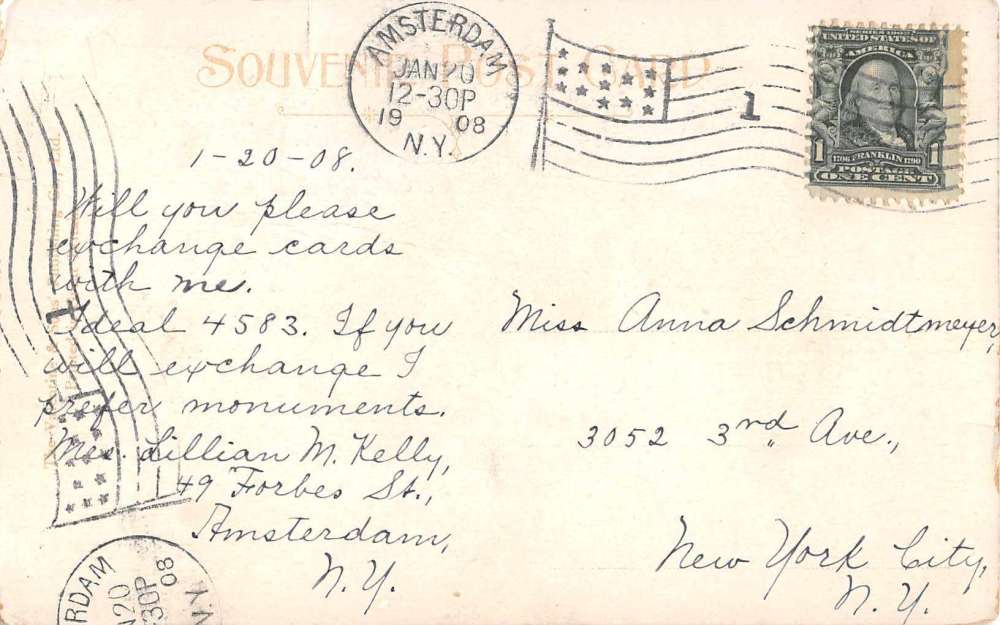 SOUVENIR POST CARD
AMSTERDAM
JAN 20
12-30P
19 08
N.Y.
1
SERIES 1902
UNITED STATES OF
AMERICA
1 1706 FRANKLIN 1790 1
POSTAGE
ONE CENT
1-20-08.
Will you please
exchange cards
with me.
Ideal 4583. If you
will exchange I
prefer monuments.
Mrs. Lillian M. Kelly,
49 Forbes St.,
Amsterdam,
N.Y.
Miss Anna Schmidtmeyer,
3052 3rd Ave.,
New York City,
N.Y.
1
RDAM
N 20
30P
08
N.Y